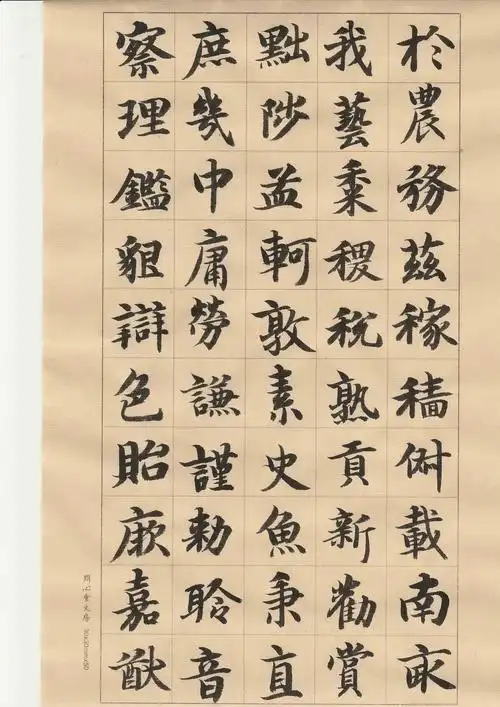 於農務茲稼穡俶載南畝
我藝黍稷稅熟貢新勸賞
黜陟孟軻敦素史魚秉直
庶幾中庸勞謙謹勅聆音
察理鑑貌辯色貽厥嘉猷